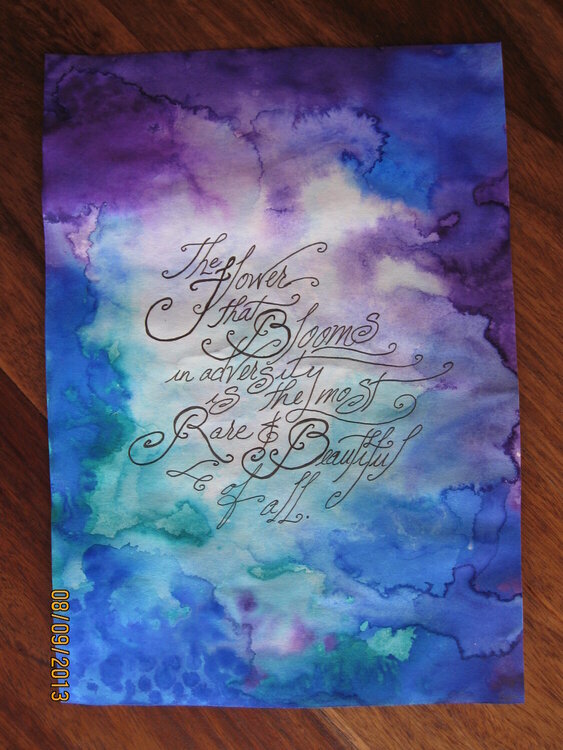 The
Flower
that
Blooms
in adversity
is the most
Rare & Beautiful
of all.
08/09/2013